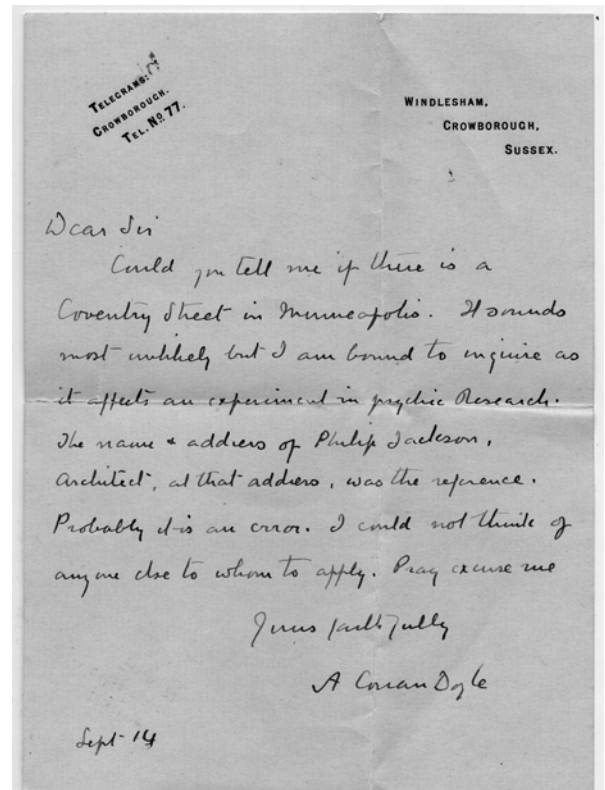 TELEGRAMS:
CROWBOROUGH.
TEL. No 77.
WINDLESHAM,
CROWBOROUGH,
SUSSEX.
Dear Sir
Could you tell me if there is a
Coventry Street in Minneapolis. It sounds
most unlikely but I am bound to inquire as
it affects an experiment in psychic Research.
The name & address of Philip Jackson,
Architect, at that address, was the reference.
Probably it is an error. I could not think of
anyone else to whom to apply. Pray excuse me
Yours faithfully
A Conan Doyle
Sept 14